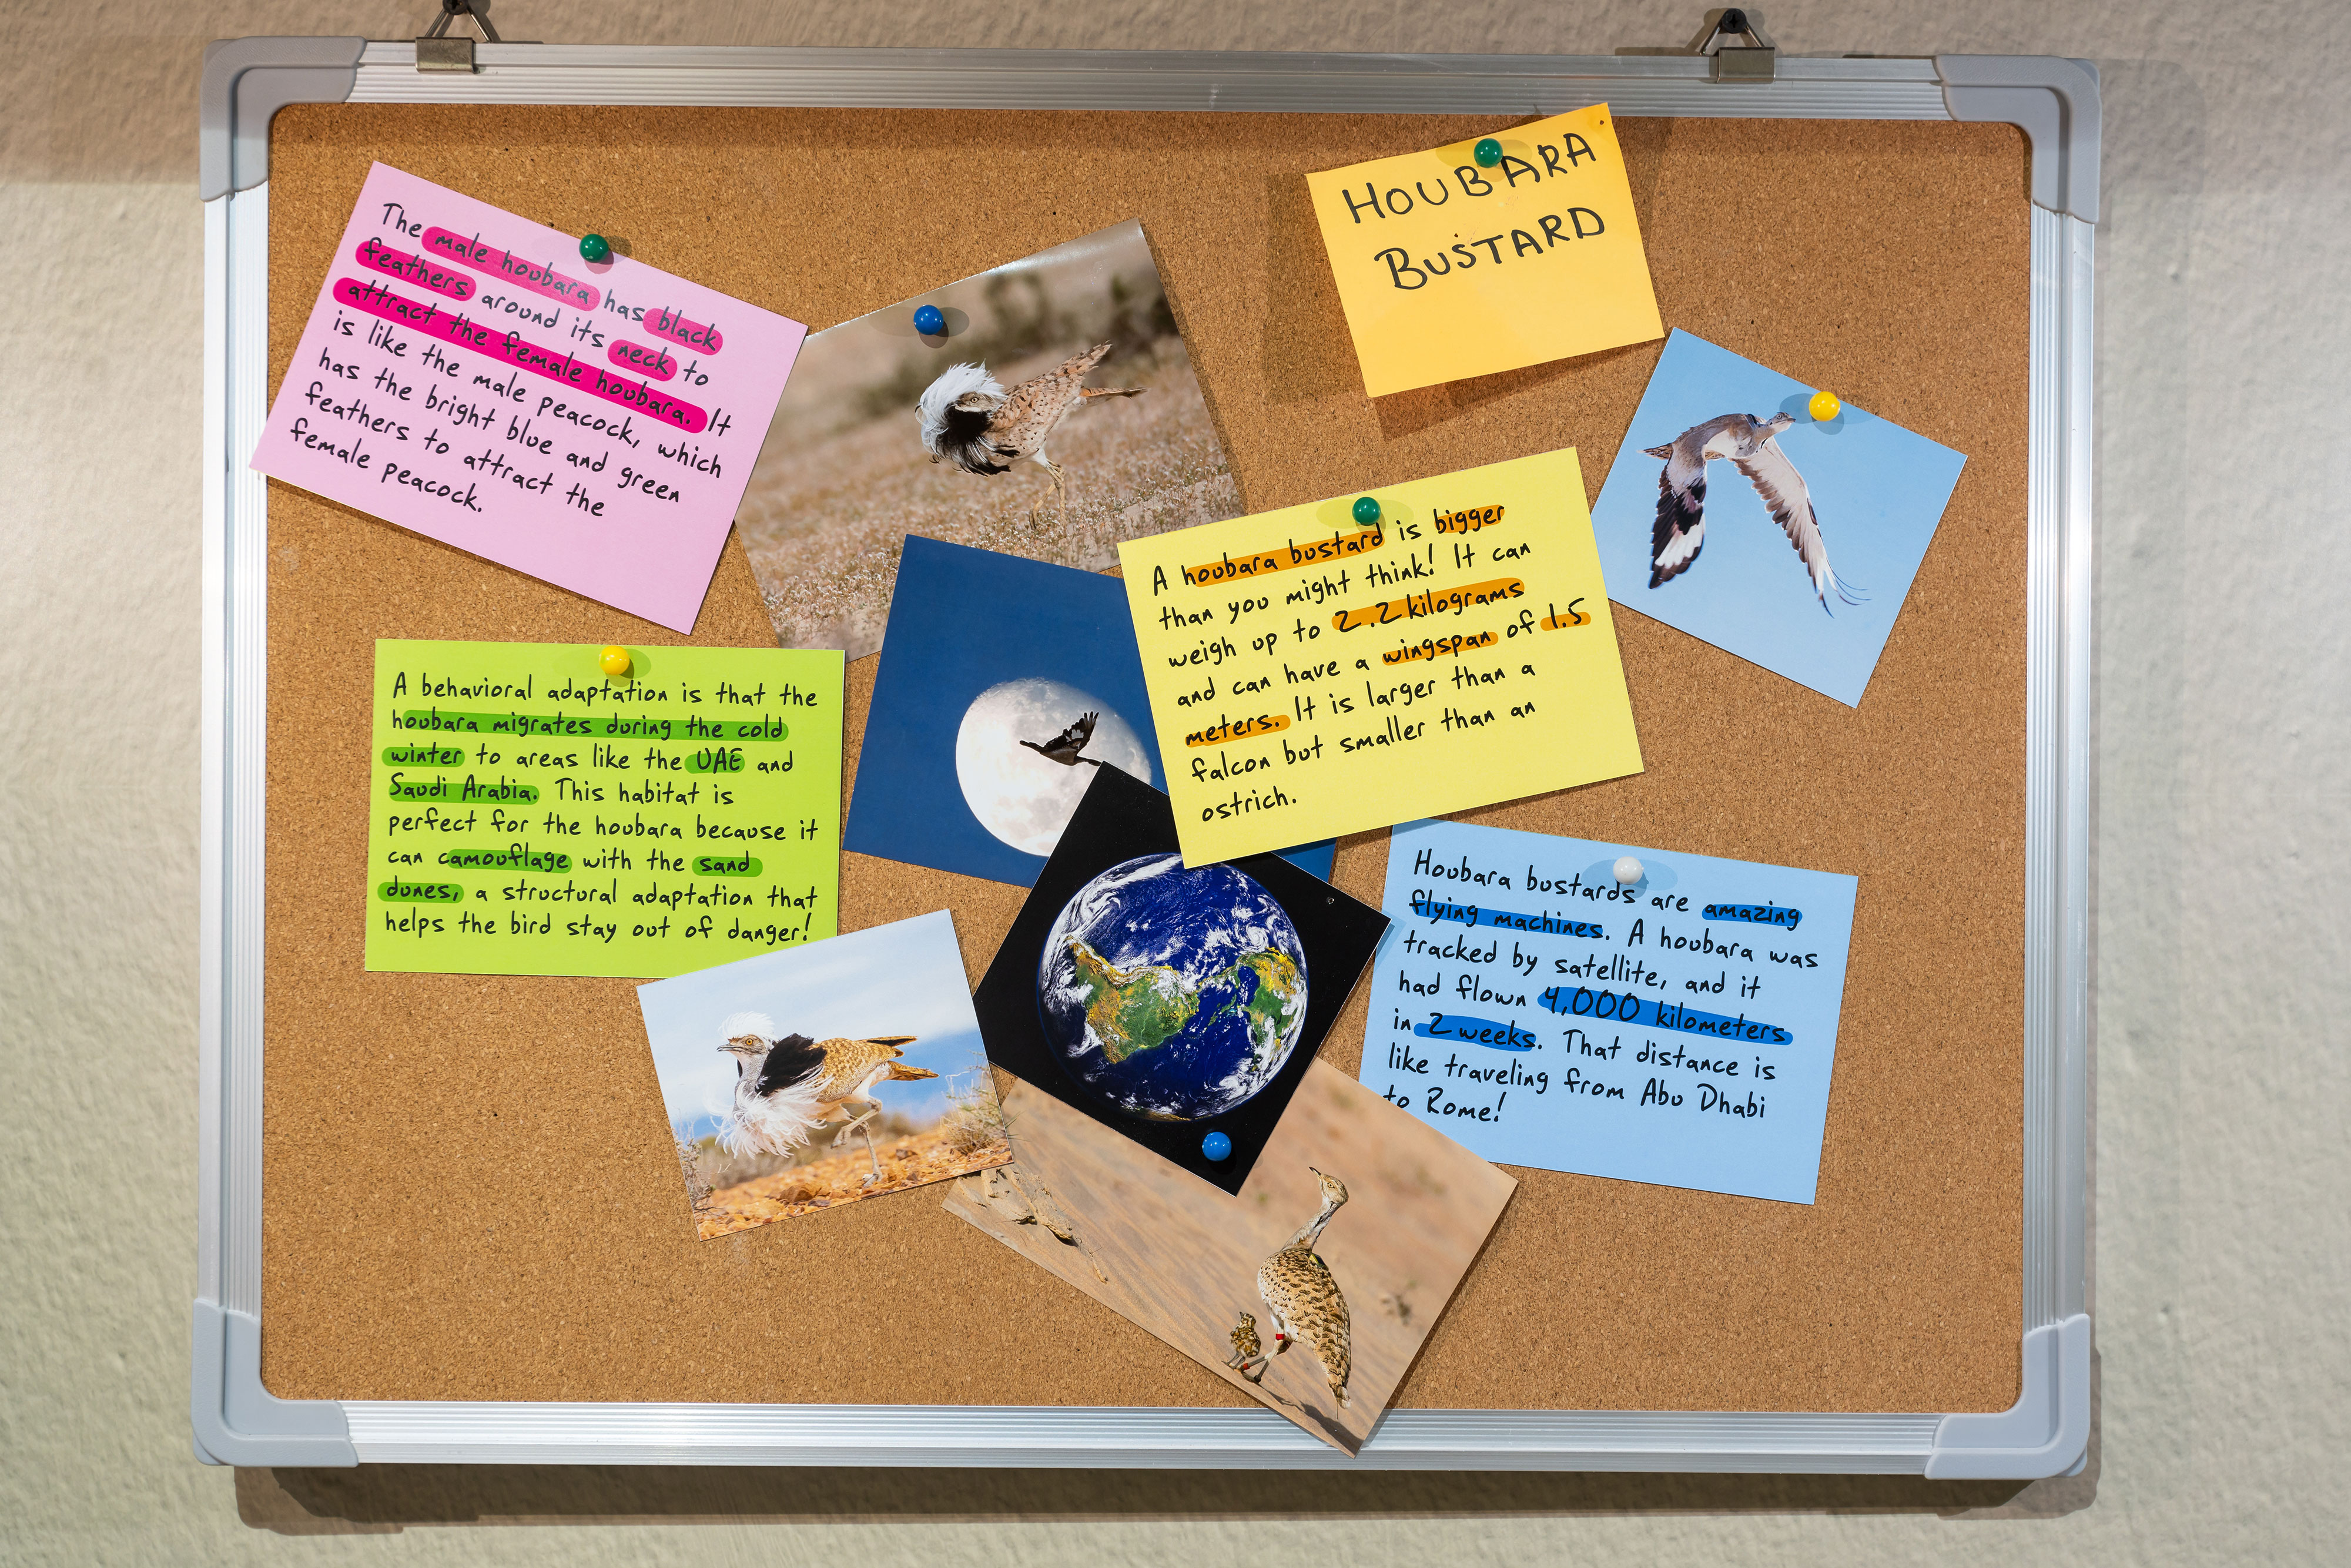 HOUBARA
BUSTARD
The male houbara has black
feathers around its neck to
attract the female houbara. It
is like the male peacock, which
has the bright blue and green
feathers to attract the
female peacock.
A houbara bustard is bigger
than you might think! It can
weigh up to 2.2 kilograms
and can have a wingspan of 1.5
meters. It is larger than a
falcon but smaller than an
ostrich.
A behavioral adaptation is that the
houbara migrates during the cold
winter to areas like the UAE and
Saudi Arabia. This habitat is
perfect for the houbara because it
can camouflage with the sand
dunes, a structural adaptation that
helps the bird stay out of danger!
Houbara bustards are amazing
flying machines. A houbara was
tracked by satellite, and it
had flown 4,000 kilometers
in 2 weeks. That distance is
like traveling from Abu Dhabi
to Rome!